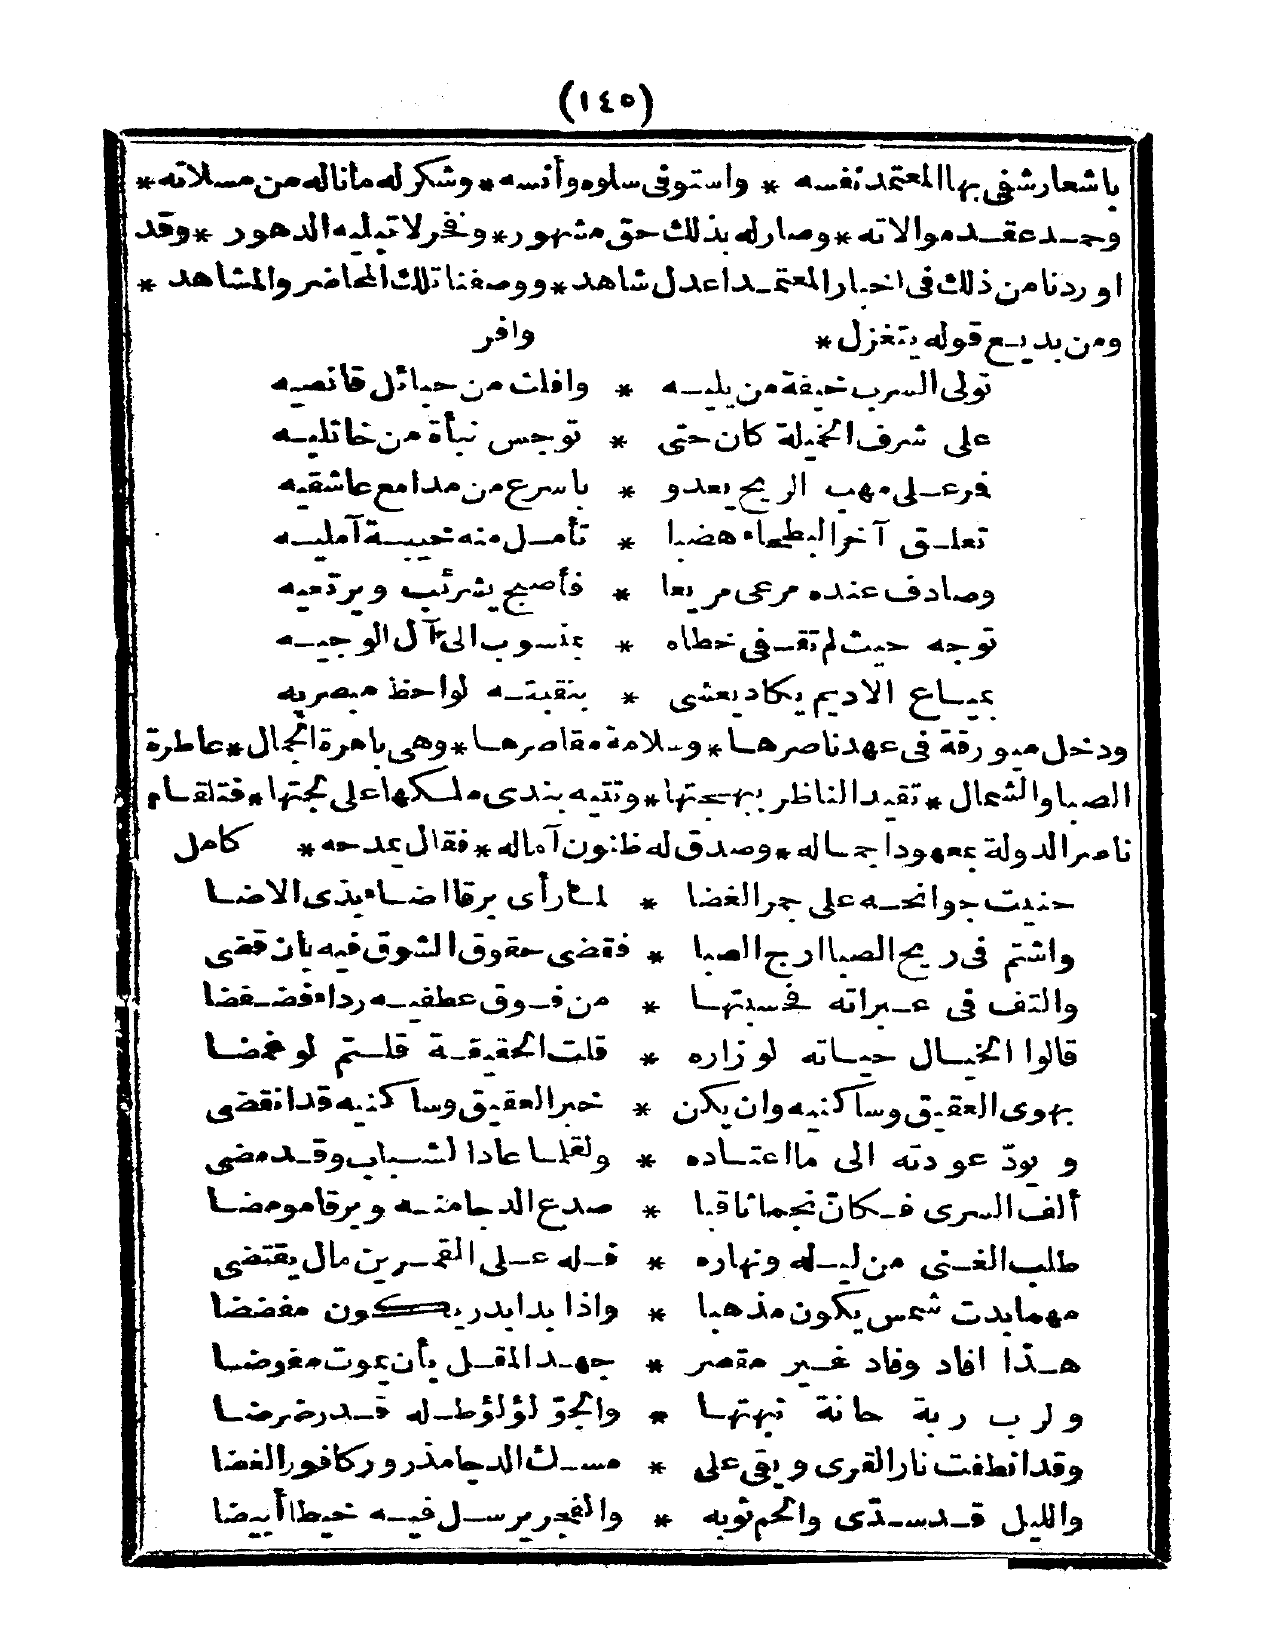 (١٤٥)
باشعار شفى بها المعتمد نفسه * واستوفى سلوه وأنسه * وشكر له ماناله من مسلاته *
وجدد عقد موالاته * وصار له بذلك حق مشهور * وفخر لا تبليه الدهور * وقد
اوردنا من ذلك فى اخبار المعتمد اعدل شاهد * ووصفنا تلك المحاضر والمشاهد *
ومن بديع قوله يتغزل * وافر
تولى السرب خيفة من يليه * وافلت من حبائل قانصيه
على شرف الخميلة كان حتى * توجس نبأة من خاتليه
فر على مهب الريح يعدو * باسرع من مدامع عاشقيه
تعلق آخر البطحاء هضبا * تأمل منه خيبة آمليه
وصادف عنده مرعى مريعا * فأصبح يشرئب ويرتعيه
توجه حيث لم تقف خطاه * بمنسوب الى آل الوجيه
بمياع الاديم يكاد يعشى * بنقبته لواحظ مبصريه
ودخل ميورقة فى عهد ناصرها * وسلامة مقاصرها * وهى باهرة الجمال * عاطرة
الصبا والشمال * تقيد الناظر ببهجتها * وتتيه بندى ملكها على لجتها * فتلقام
ناصر الدولة بمعهود اجماله * وصدق له ظنون آماله * فقال يمدحه * كامل
حنيت جوانحه على جمر الغضا * لما رأى برقا اضاء بذى الاضا
واشتم فى ريح الصبا ارج الصبا * فقضى حقوق الشوق فيه بان قضى
والتف فى عبراته فحسبتها * من فوق عطفيه رداء فضفضا
قالوا الخيال حياته لو زاره * قلت الحقيقة قلتم لو غمضا
يهوى العقيق وساكنيه وان يكن * خبر العقيق وساكنيه قد انقضى
ويود عودته الى مااعتاده * ولقلما عاد الشباب وقد مضى
ألف السرى فكان نجما ثاقبا * صدع الدجا منه وبرقا مومضا
طلب الغنى من ليله ونهاره * فله على القمرين مال يقتضى
مهما بدت شمس يكون مذهبا * واذا بدا بدر يكون مفضضا
هذا افاد وفاد غير مقصر * جهد المقل بأن يموت مفوضا
ولرب ربة حانة نبهتها * والجو لؤلؤ طله قد رضرضا
وقد انطفت نار القرى وبقى على * مسك الدجا مذرور كافور الغضا
والليل قد سدى والحم ثوبه * والفجر يرسل فيه خيطا أبيضا